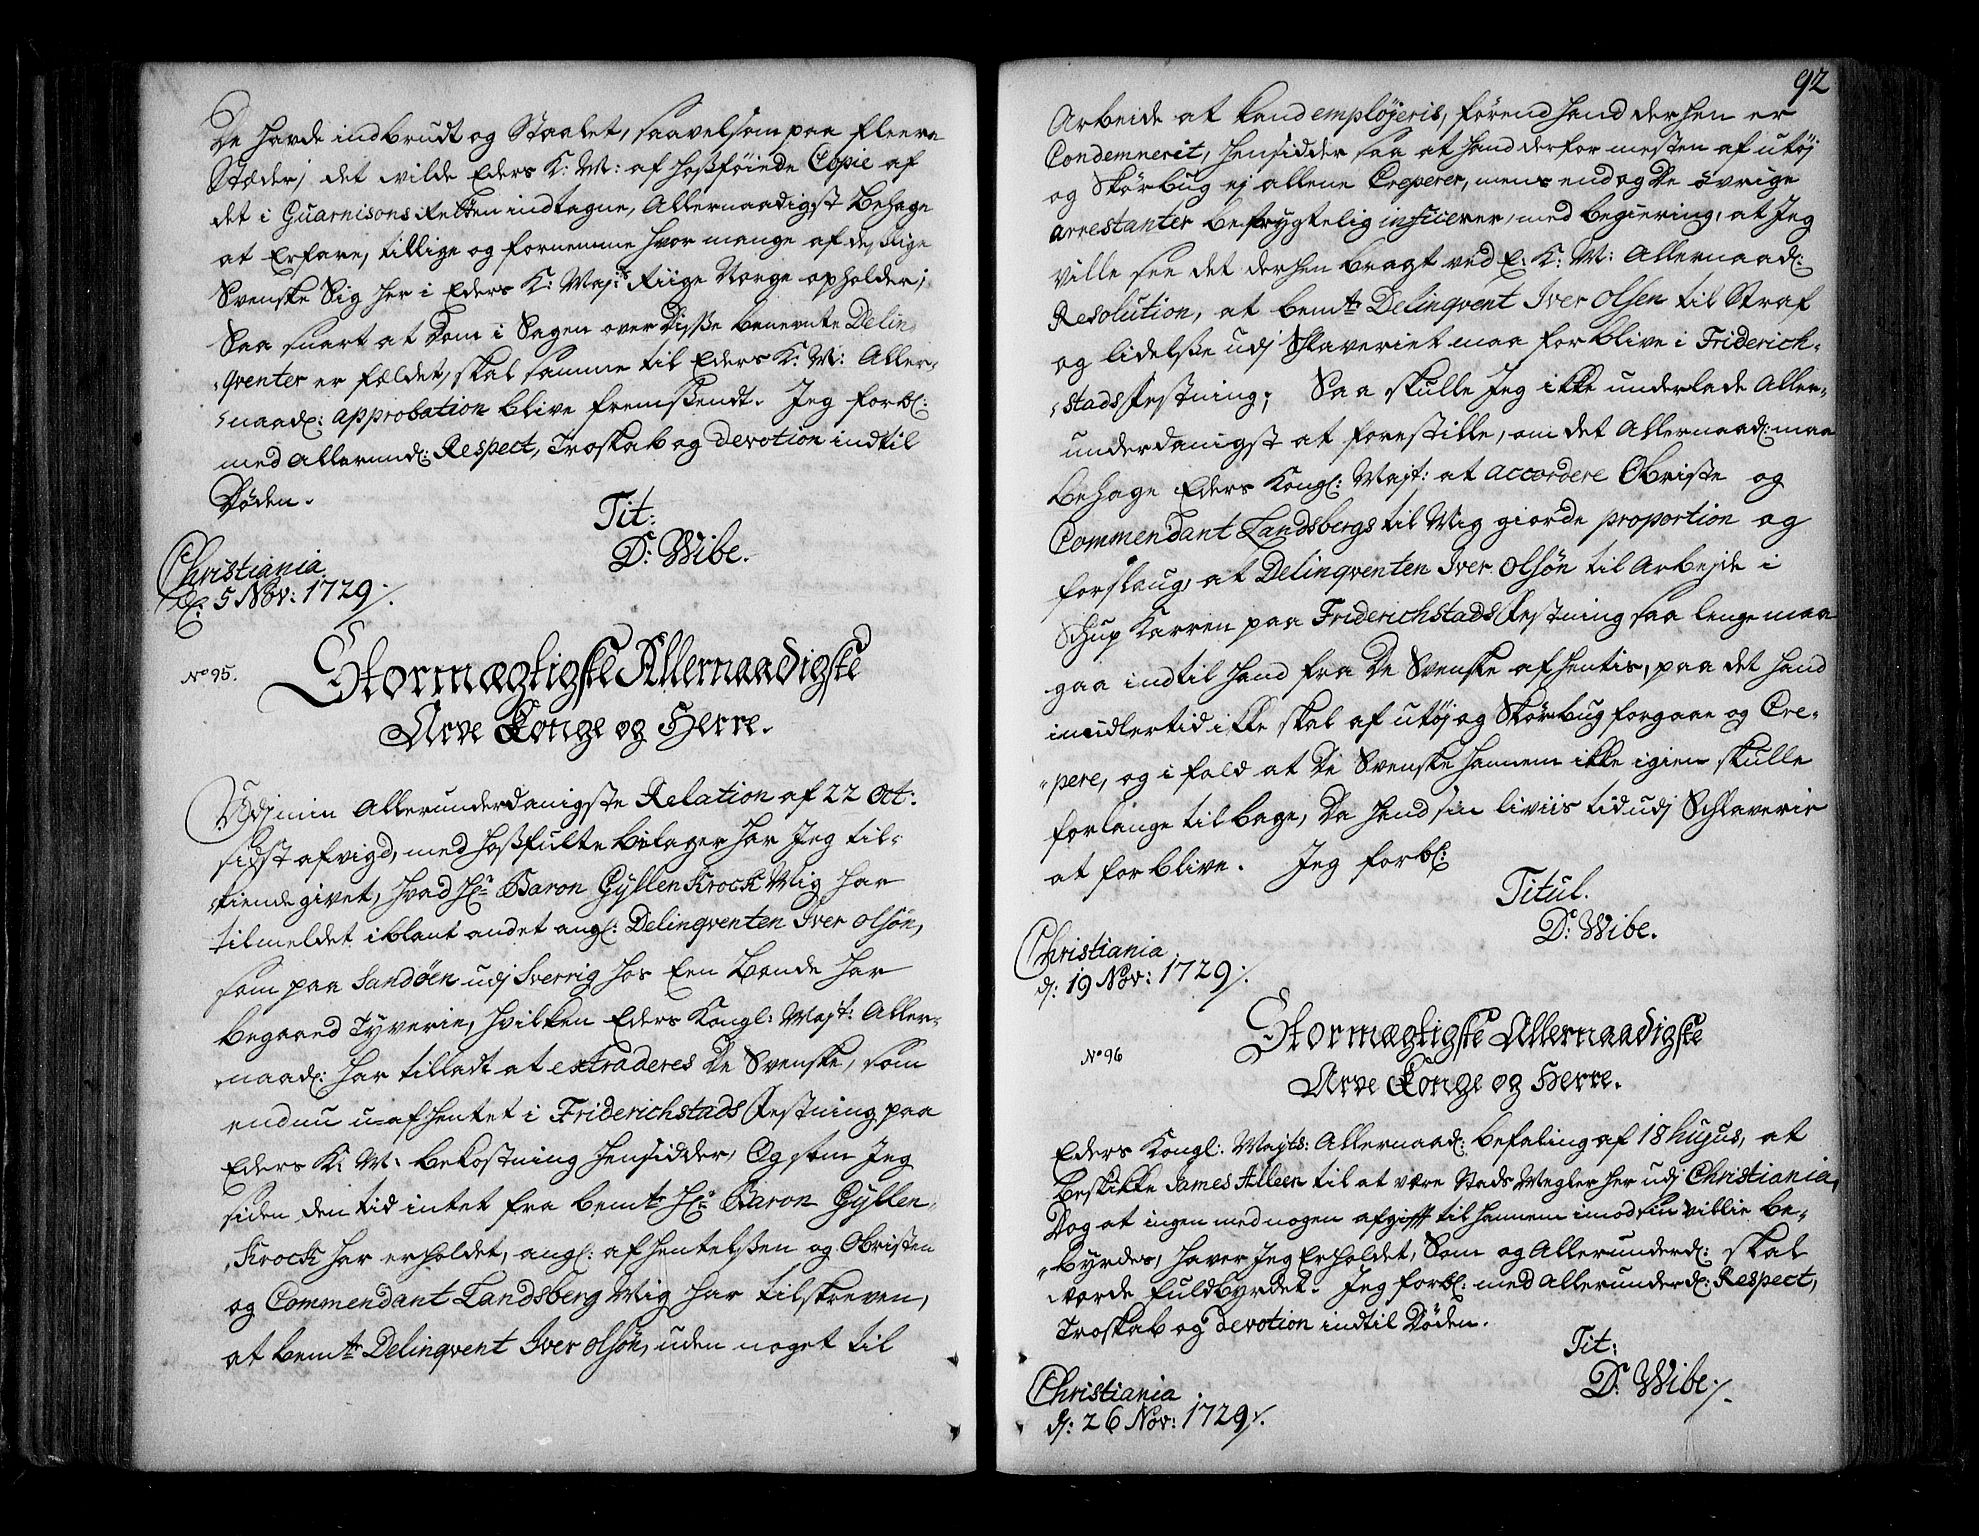 De hafde indbrudt og Staalet, saavelsom paa fleere
Stæder, det vilde Eders K: M: af hoßføiede Copie af
det i Guarnisons Retten indtagne, Allernaadigst behage
at Erfare, tillige og fornemme hvor mange af deßlige
Svenske Sig her i Eders K: Maj:ts Riige Norge opholder;
Saa snart at Dom i Sagen over Disße benevnte Delin-
qventer er fældet, skal samme til Eders K: M: Aller-
naad: approbation blive fremßendt. Jeg forbl:
med Allerund: Respect, Troskab og devotion indtil
Døden.
Tit:
D: Wibe.
Christiania
d: 5 Nov: 1729
No 95.
Stormægtigste Allernaadigste
Arve Konge og Herre.
Udj min Allerunderdanigste Relation af 22 Oct:
sidst afvigd, med hoßfulte bilager har Jeg til-
kiende givet, hvad Hr Baron Gyllenkrock Mig har
tilmeldet iblant andet ang: Delinqventen Iver Olsøn,
som paa Sandøen udj Sverrig hos Een bonde har
begaaed Tyverie, hvilken Eders Kongl: Majt: Aller-
naad: har tilladt at extraderes De Svenske, som
endnu u-afhentet i Friderichstads Festning paa
Eders K: M: bekostning hensidder, Og som Jeg
siden den tid intet fra bemte Hr Baron Gyllen-
Krock har erholdet, ang: afhentelßen og Obristen
og Commendant Landsberg Mig har tilskreven,
at bemte Delinqvent Iver Olsøn, uden noget til
92
Arbeide at kand employeris, førend hand derhen er
Condemnerit, hensidder saa at hand derfor mesten af utøj
og Skørbug ej allene Creperer, mens end og De øvrige
arrestanter befrygtelig inficerer, med begiering, at Jeg
ville see det derhen bragt ved E: K: M: Allernaad:
Resolution, at bemte Delinqvent Iver Olsen til Straf
og lidelße udj Sklaveriet maa forblive i Friderich-
stads Festning; Saa skulle Jeg ikke underlade Aller-
underdanigst at forestille, om det Allernaad: maa
behage Eders Kongl: Majt: at accordere Obriste og
Commendant Landsbergs til Mig giorde proportion og
forslaug, at Delinqventen Iver Olsøn til Arbejde i
Schup Karren paa Friderichstads Festning saa lenge maa
gaa indtil hand fra De Svenske afhentis, paa det hand
imidlertid ikke skal af utøj og Skørbug forgaae og Cre-
pere, og i fald at De Svenske hannem ikke igien skulle
forlange tilbage, Da hand sin liviis tid udj Schlaverie
at forblive. Jeg forbl:
Titul.
D: Wibe.
Christiania
d: 19 Nov: 1729
No 96
Stormægtigste Allernaadigste
Arve Konge og Herre.
Eders Kongl: Mayts: Allernaad: befaling af 18 hujus, at
beskikke James Alleen til at være Stads Megler her udj Christiania,
Dog at ingen med nogen afgifft til hannem imod sin villie be-
byrdes, haver Jeg Erholdet, Som og Allerunderd: skal
vorde fuldbyrdet. Jeg forbl: med Allerunderd: Respect,
Troskab og devotion indtil Døden.
Tit:
D: Wibe
Christiania
d: 26 Nov: 1729